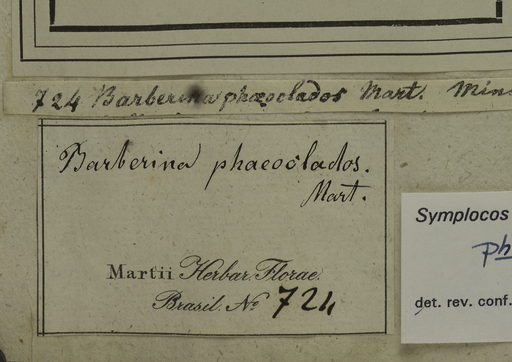 724 Barberina phaeoclados Mart. Min
Barberina phaeoclados.
Mart.
Martii Herbar. Florae
Brasil. No 724
Symplocos
ph
det. rev. conf.